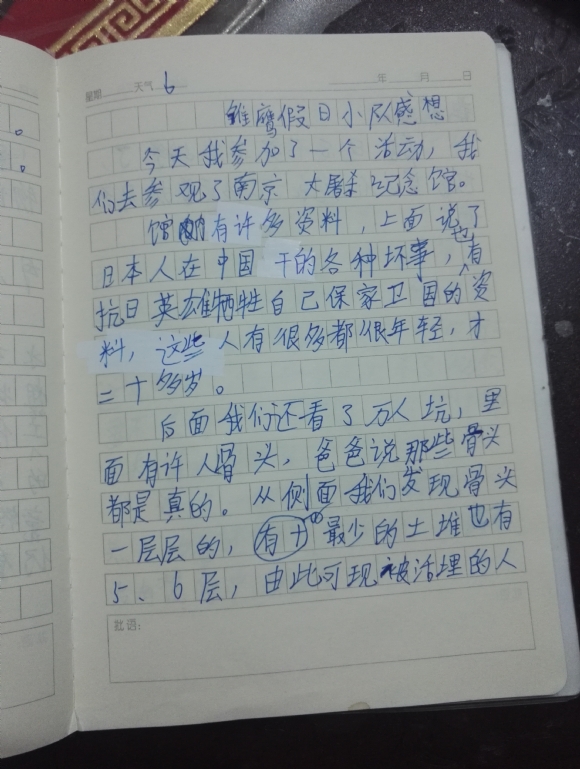 星期 天气 6 年 月 日
雏鹰假日小队感想
今天我参加了一个活动，我
们去参观了南京大屠杀纪念馆。
馆内有许多资料，上面说了
日本人在中国干的各种坏事，也有
抗日英雄牺牲自己保家卫国的资
料，这些人有很多都很年轻，才
二十多岁。
后面我们还看了万人坑，里
面有许人骨头，爸爸说那些骨头
都是真的。从侧面我们发现骨头
一层层的，有十最少的土堆也有
5、6层，由此可现被活埋的人
批语：